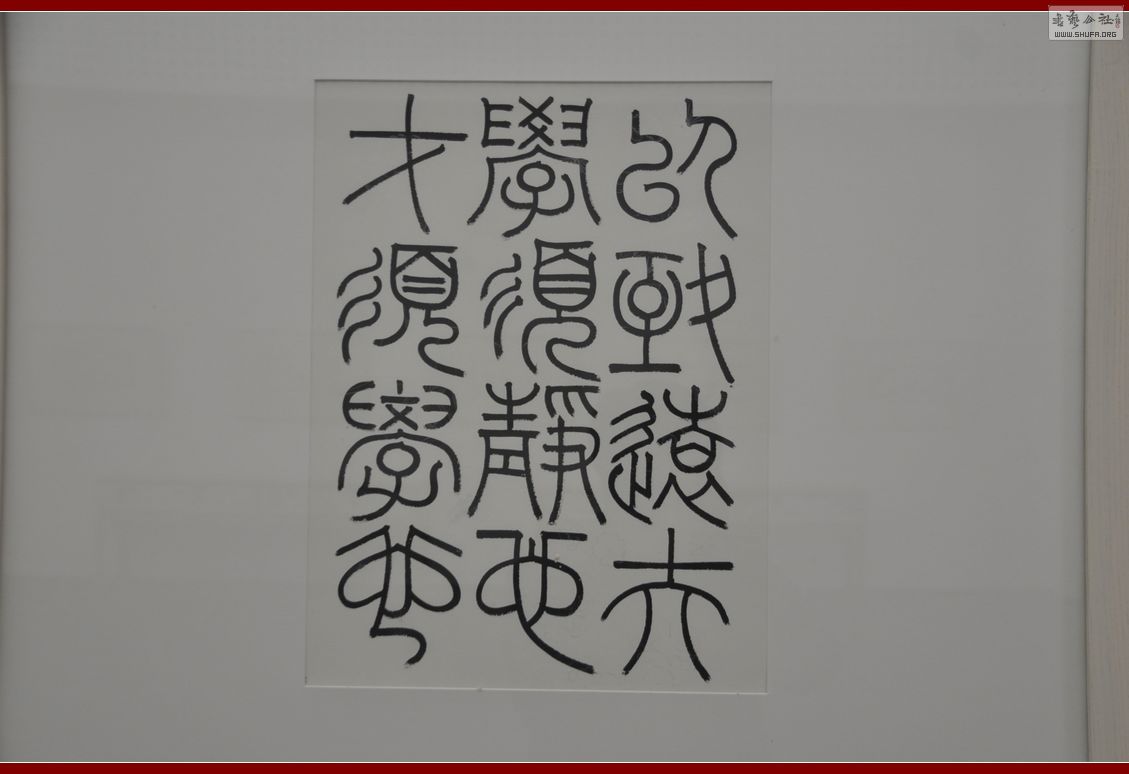 以致遠夫
學須靜也
才須學也
書藝公社
WWW.SHUFA.ORG